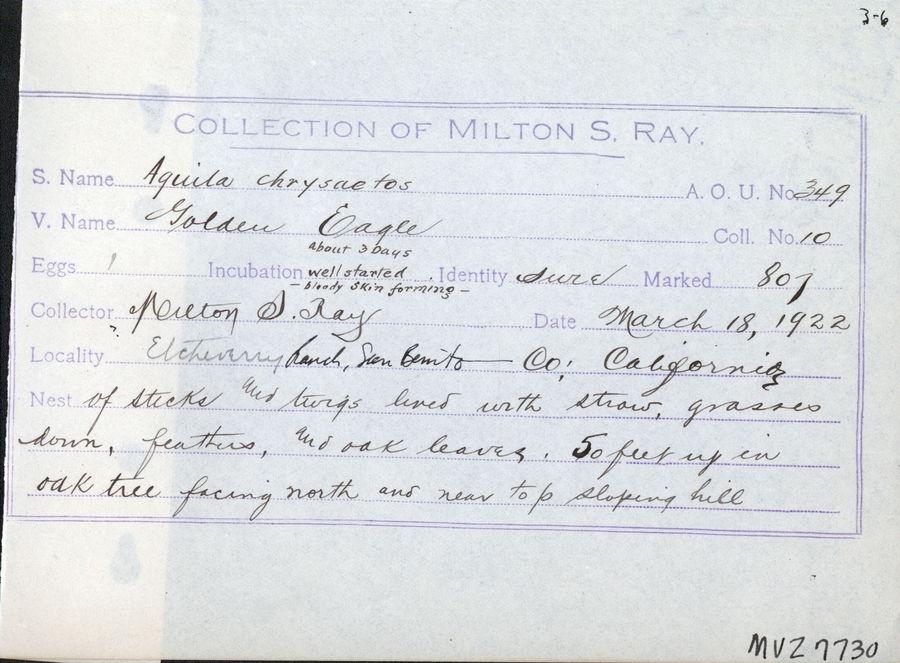 3-6
COLLECTION OF MILTON S. RAY.
S. Name Aquila chrysaetos A. O. U. No. 349
V. Name Golden Eagle Coll. No. 10
about 3 Days
Eggs 1 Incubation well started. Identity sure Marked 807
— bloody skin forming —
Collector Milton S. Ray Date March 18, 1922
Locality Etcheverry Ranch, San Benito Co; California
Nest of sticks and twigs lined with straw, grasses
down, feathers, and oak leaves. 50 feet up in
oak tree facing north and near top sloping hill
MVZ 7730